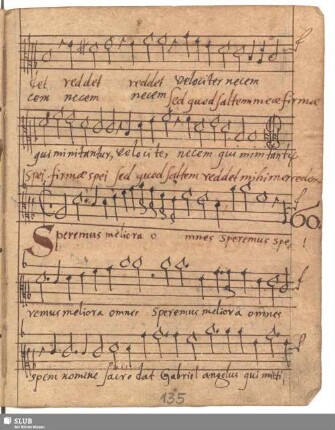 det reddet reddet velociter necem
cem necem necem sed quod saltem meæ firmæ
qui mi mitantur, velociter necem qui mi mitantur
spei firmæ spei sed quod saltem reddet
60
Speremus meliora omnes speremus
remus meliora omnes speremus meliora omnes
spem nomine sacro dat Gabriel angelus qui mihi
135
SLUB